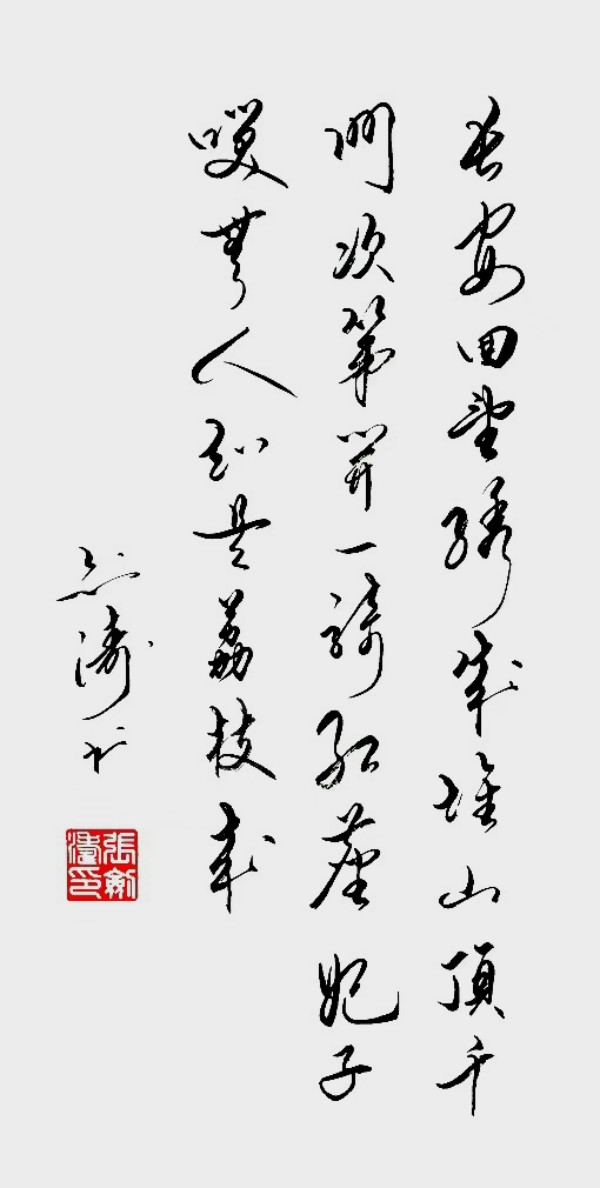 長安回望繡成堆山頂千
門次第開一騎紅塵妃子
笑無人知是荔枝來
濤书
張劍
濤印